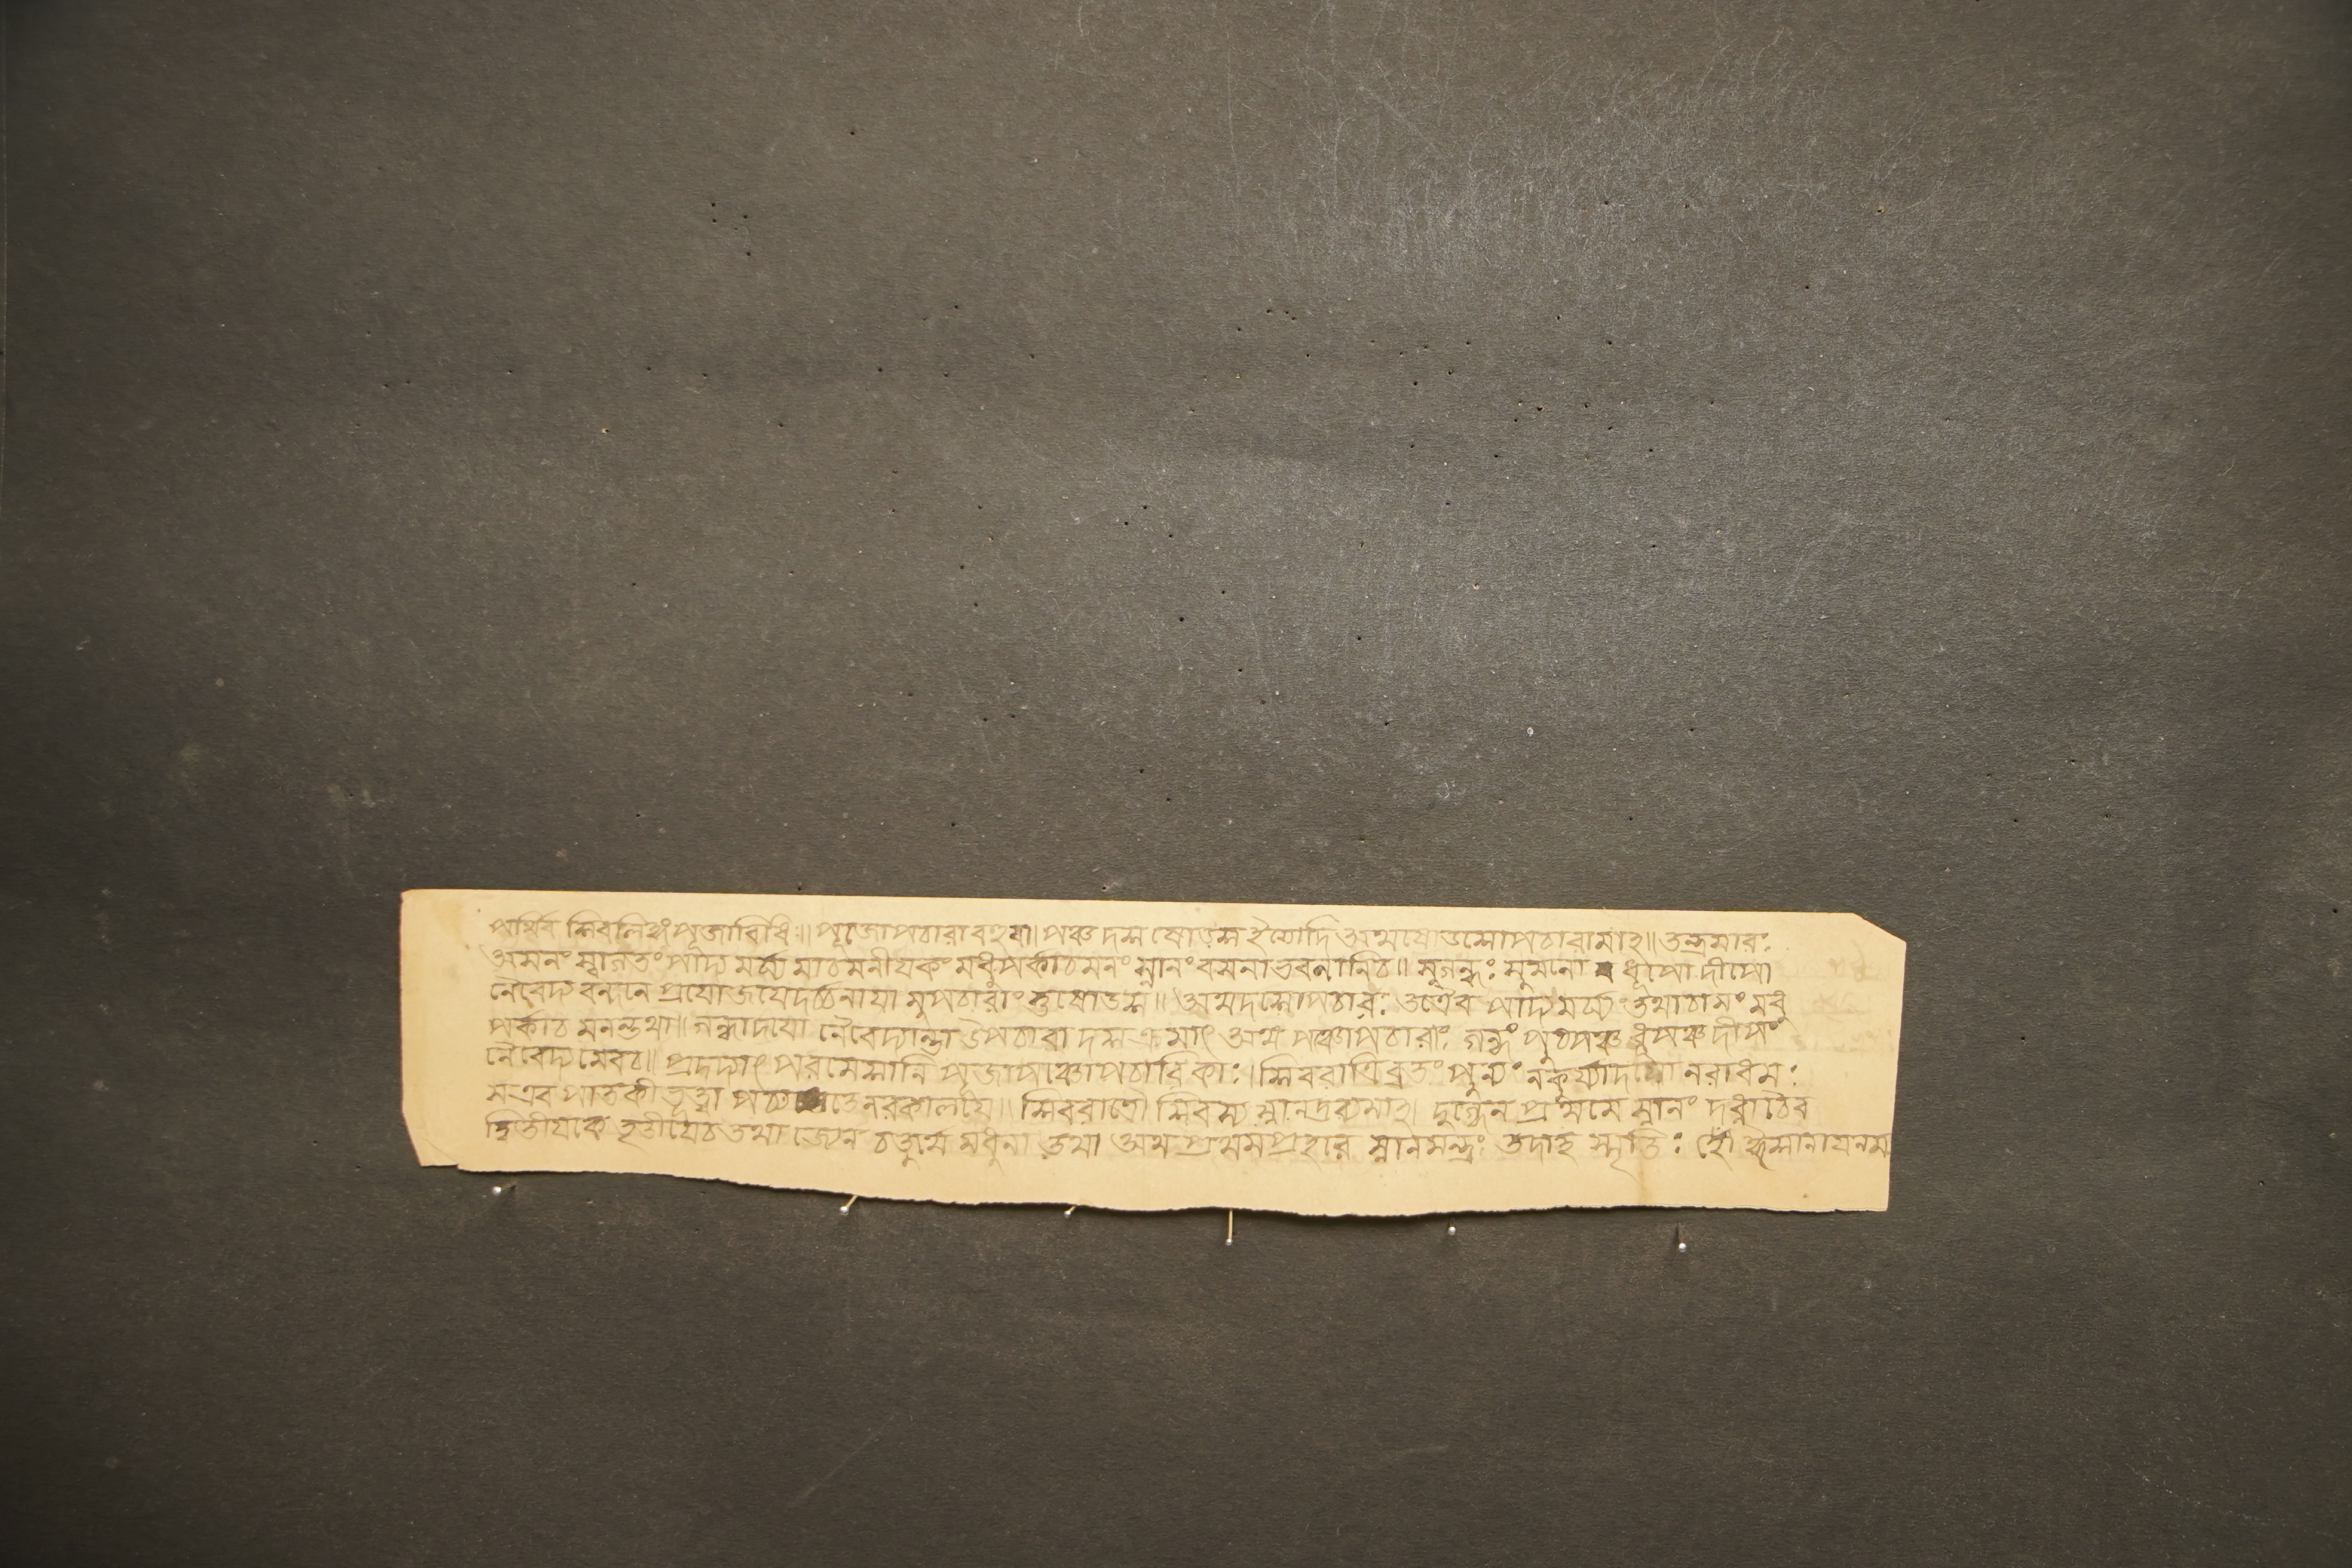 পার্থিব শিবলিঙ্গ পূজাবিধিঃ॥ পূজোপচারাবহুধা। পঞ্চ দশ ষোড়শ ইত্যাদি অথষোডশোপচারামাহ॥ তন্ত্রসারঃ
আসনং স্বাগতং পাদ্য মর্ঘ্য মাচমনীযকং মধুপর্কাচমনং স্নানং বসনাভরণানিচ॥ সুগন্ধঃ সুমনো ধূপো দীপো
নৈবেদ্য বন্দনে প্রযোজযেদর্চ্চনাযা মুপচারাংস্তুষোডশ॥ অথদশোপচারঃ তত্রৈব পাদ্য মর্ঘ্যং তথাচামং মধু
পর্কাচ মনন্তথা॥ গন্ধাদযো নৈবেদ্যান্তা উপচারা দশ ক্রমাৎ অথ পঞ্চোপচারাঃ গন্ধং পুষ্পঞ্চ ধূপঞ্চ দীপং
নৈবেদ্য মেবচ॥ প্রদদ্যাৎ পরমেশানি পূজাপঞ্চোপচারিকাঃ। শিবরাত্রিব্রতং পুন্যং নকুর্য্যাদযো নরাধমঃ
সএব পাতকী ভূত্বা পচ্যতেনরকালযে॥ শিবরাত্রৌ শিবস্য স্নানদ্রব্যমাহ। দুগ্ধেন প্রথমে স্নানং দধ্নাচৈব
দ্বিতীযকে তৃতীযেচ তথা জ্যেন চতুর্থে মধুনা তথা অথ প্রথমপ্রহরে স্নানমন্ত্রঃ তদাহ স্মৃতিঃ হৌঁ ঈশানাযনম